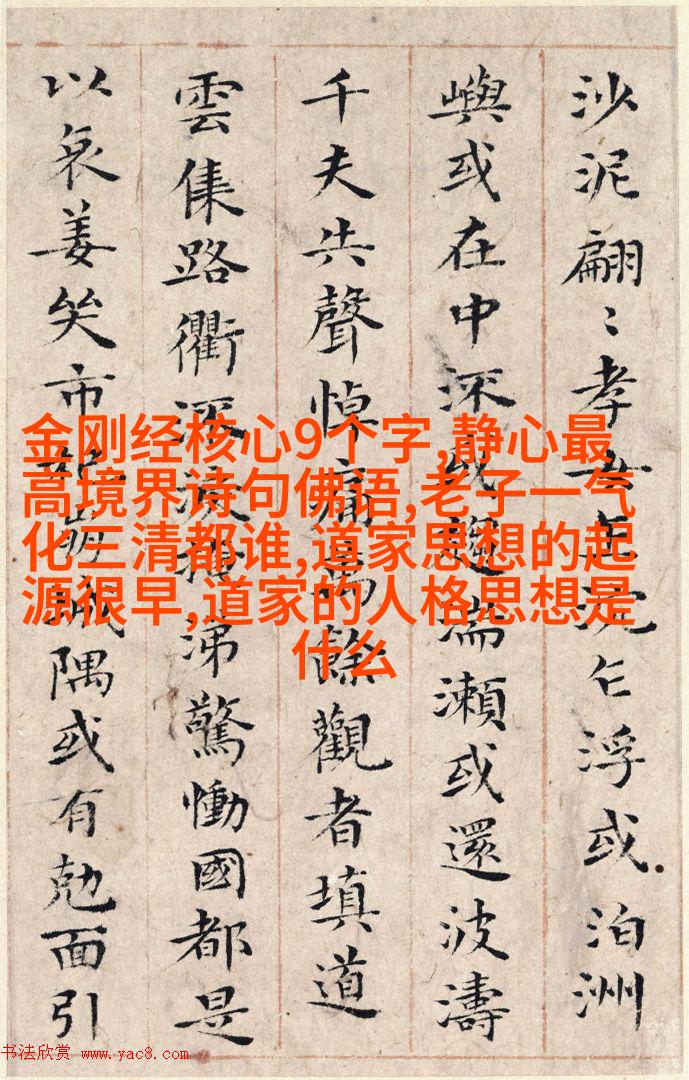 沙泥翩〻孝女乍沉乍浮或泊洲
嶼或在中深或趨湍瀨或還波濤
千夫共聲悼痛萬餘觀者填道
雲集路衢淚掩涕驚慟國都是
以哀姜哭市杞崩城隅或有尅面引
金刚经核心9个字,静心最
高境界诗句佛语,老子一气
化三清都谁,道家思想的起
源很早,道家的人格思想是
什么
书法欣赏 www.yac8.com